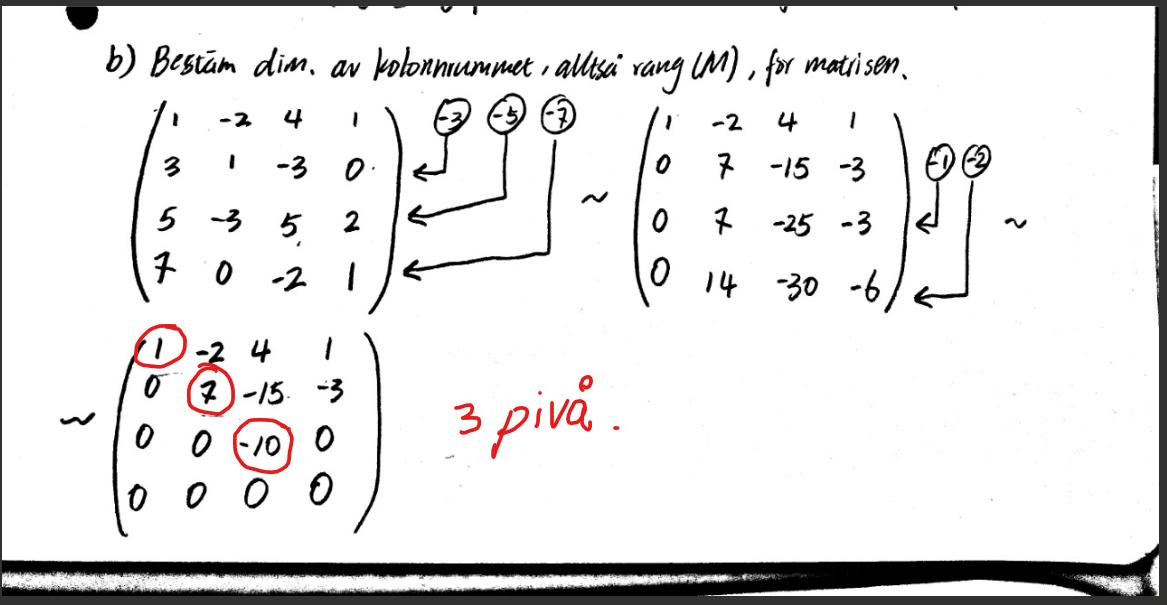 b) Bestäm dim. av kolonnrummet, alltså rang (M), för matrisen.
1 -2 4 1
3 1 -3 0
5 -3 5 2
7 0 -2 1
-3 -5 -7
~
1 -2 4 1
0 7 -15 -3
0 7 -25 -3
0 14 -30 -6
-1 -2
~
~
1 -2 4 1
0 7 -15 -3
0 0 -10 0
0 0 0 0
3 pivå.